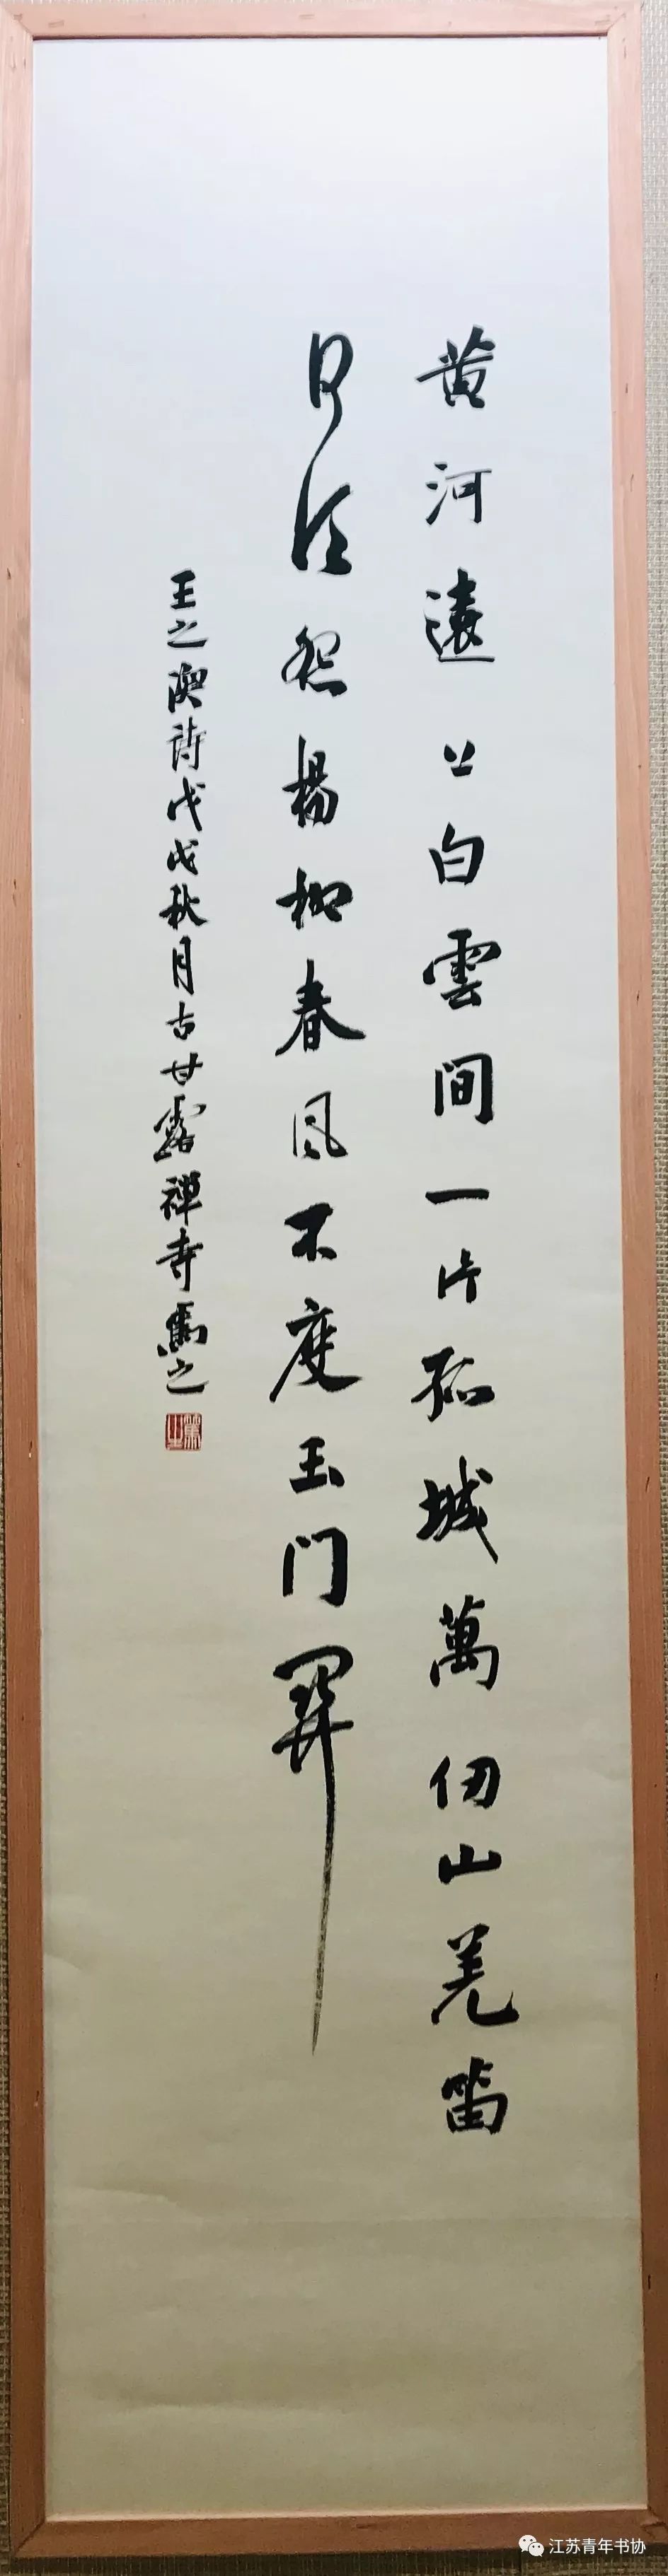 黄河遠上白雲間一片孤城萬仞山羌笛
何須怨楊柳春風不度玉门關
王之渙詩戊戌秋月古甘露禪寺篤之
江苏青年书协